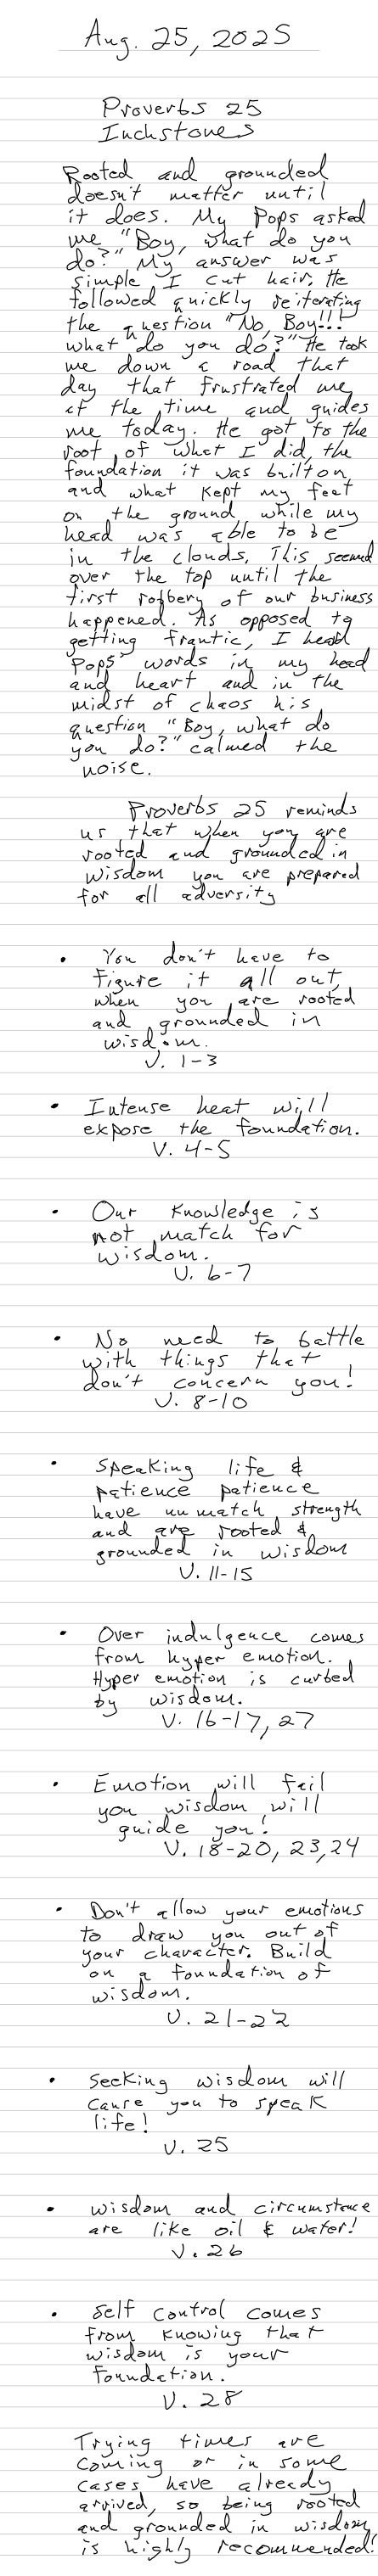 Aug. 25, 2025
Proverbs 25
Inchstones
Rooted and grounded
doesn't matter until
it does. My Pops asked
me "Boy, what do you
do?" My answer was
simple I cut hair. He
followed quickly reiterating
the question "No, Boy!!!
what do you do?" He took
me down a road that
day that frustrated me
at the time and guides
me today. He got to the
root of what I did, the
foundation it was built on
and what kept my feet
on the ground while my
head was able to be
in the clouds. This seemed
over the top until the
first robbery of our business
happened. As opposed to
getting frantic, I heard
Pops' words in my head
and heart and in the
midst of chaos his
question "Boy, what do
you do?" calmed the
noise.
Proverbs 25 reminds
us that when you are
rooted and grounded in
wisdom you are prepared
for all adversity
• You don't have to
figure it all out,
when you are rooted
and grounded in
wisdom.
V. 1-3
• Intense heat will
expose the foundation.
V. 4-5
• Our knowledge is
not match for
wisdom.
V. 6-7
• No need to battle
with things that
don't concern you!
V. 8-10
• Speaking life &
patience patience
have unmatch strength
and are rooted &
grounded in wisdom
V. 11-15
• Over indulgence comes
from hyper emotion.
Hyper emotion is curbed
by wisdom.
V. 16-17, 27
• Emotion will fail
you wisdom will
guide you!
V. 18-20, 23,24
• Don't allow your emotions
to draw you out of
your character. Build
on a foundation of
wisdom.
V. 21-22
• Seeking wisdom will
cause you to speak
life!
V. 25
• Wisdom and circumstance
are like oil & water!
V. 26
• Self control comes
from knowing that
wisdom is your
foundation.
V. 28
Trying times are
coming or in some
cases have already
arrived, so being rooted
and grounded in wisdom
is highly recommended!